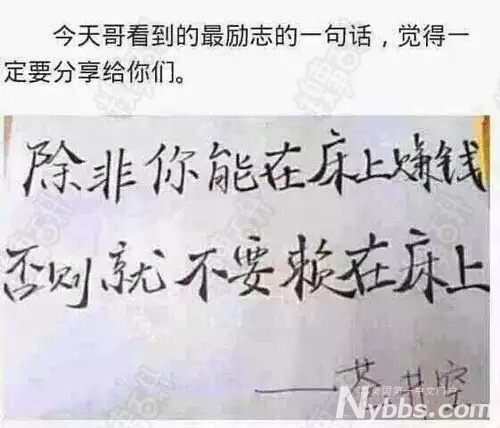 今天哥看到的最励志的一句话，觉得一
定要分享给你们。
除非你能在床上赚钱
否则就不要赖在床上
——苍井空
美国第一中文门户
Nybbs.com